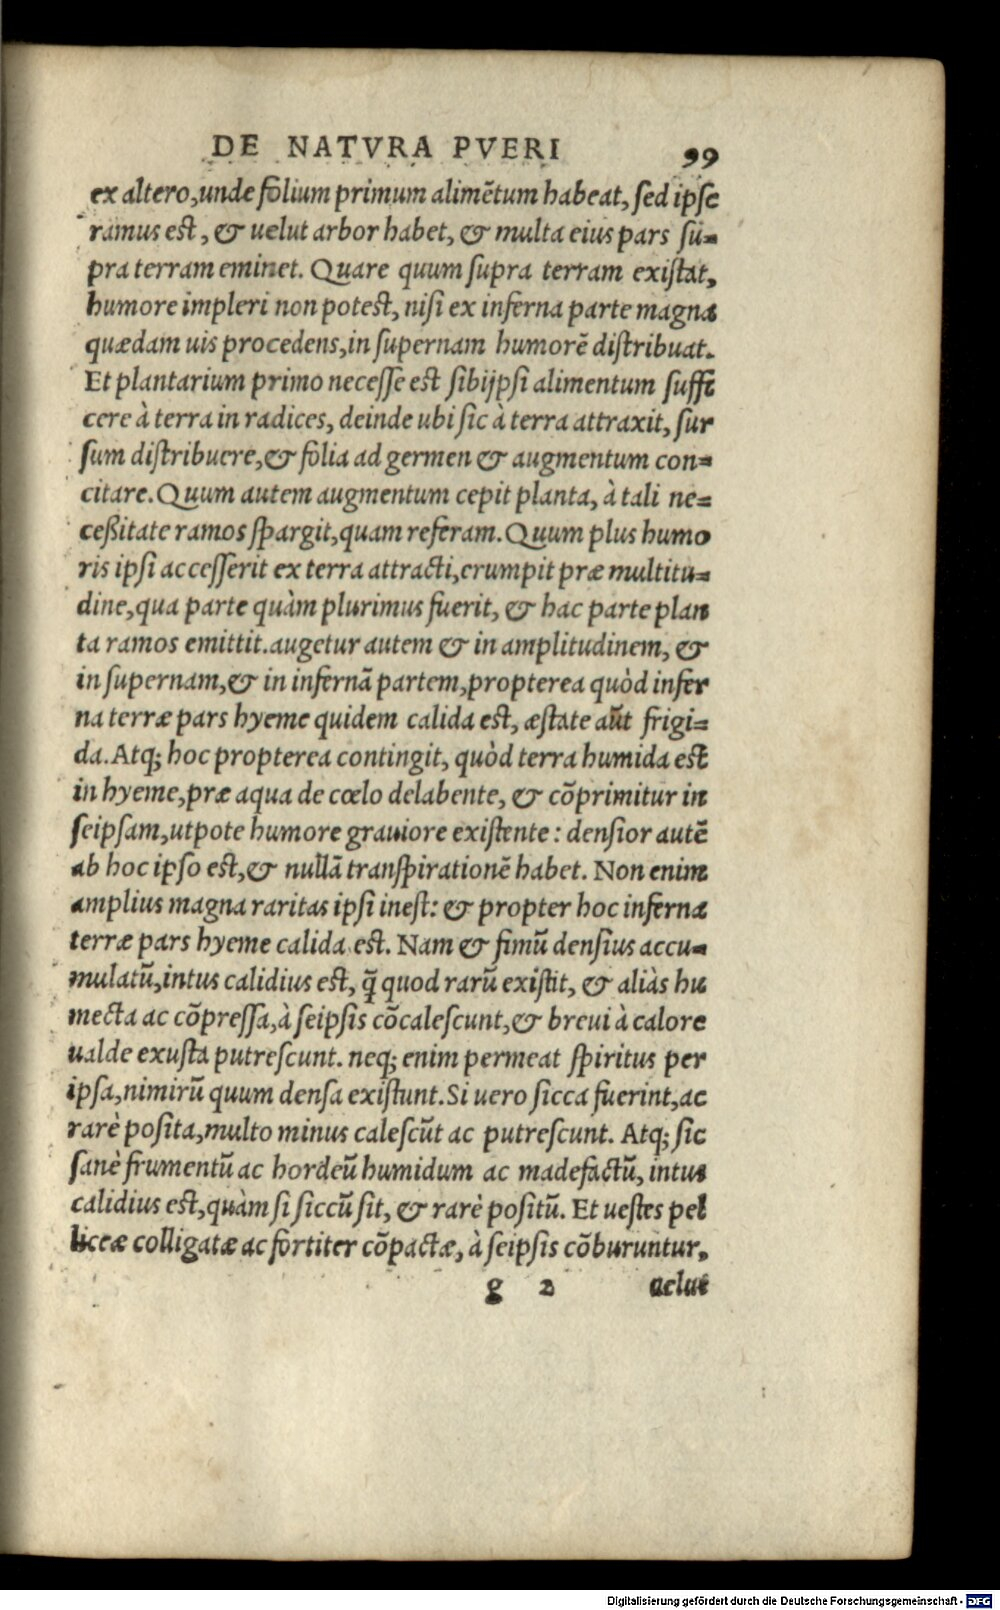 DE NATVRA PVERI 99
ex altero,unde folium primum alimẽtum habeat, sed ipse
ramus est, & uelut arbor habet, & multa eius pars su=
pra terram eminet. Quare quum supra terram existat,
humore impleri non potest, nisi ex inferna parte magna
quædam uis procedens,in supernam humorẽ distribuat.
Et plantarium primo necesse est sibijpsi alimentum suffi
cere à terra in radices, deinde ubi sic à terra attraxit, sur
sum distribuere,& folia ad germen & augmentum con=
citare. Quum autem augmentum cepit planta, à tali ne=
ceßitate ramos spargit,quam referam. Quum plus humo
ris ipsi accesserit ex terra attracti,erumpit præ multitu=
dine,qua parte quàm plurimus fuerit, & hac parte plan
ta ramos emittit.augetur autem & in amplitudinem, &
in supernam,& in infernã partem,propterea quòd infer
na terræ pars hyeme quidem calida est, æstate aũt frigi=
da. Atq; hoc propterea contingit, quòd terra humida est
in hyeme,præ aqua de cœlo delabente, & cõprimitur in
seipsam,utpote humore grauiore existente: densior autẽ
ab hoc ipso est,& nullã transpirationẽ habet. Non enim
amplius magna raritas ipsi inest: & propter hoc inferna
terræ pars hyeme calida est. Nam & fimũ densius accu=
mulatũ,intus calidius est, q̃ quod rarũ existit, & aliàs hu
mecta ac cõpressa,à seipsis cõcalescunt,& breui à calore
ualde exusta putrescunt. neq; enim permeat spiritus per
ipsa,nimirũ quum densa existunt. Si uero sicca fuerint,ac
rarè posita,multo minus calescũt ac putrescunt. Atq; sic
sanè frumentũ ac hordeũ humidum ac madefactũ, intus
calidius est,quàm si siccũ sit, & rarè positũ. Et uestes pel
liceæ colligatæ ac fortiter cõpactæ, à seipsis cõburuntur,
g 2 uelut
Digitalisierung gefördert durch die Deutsche Forschungsgemeinschaft - DFG